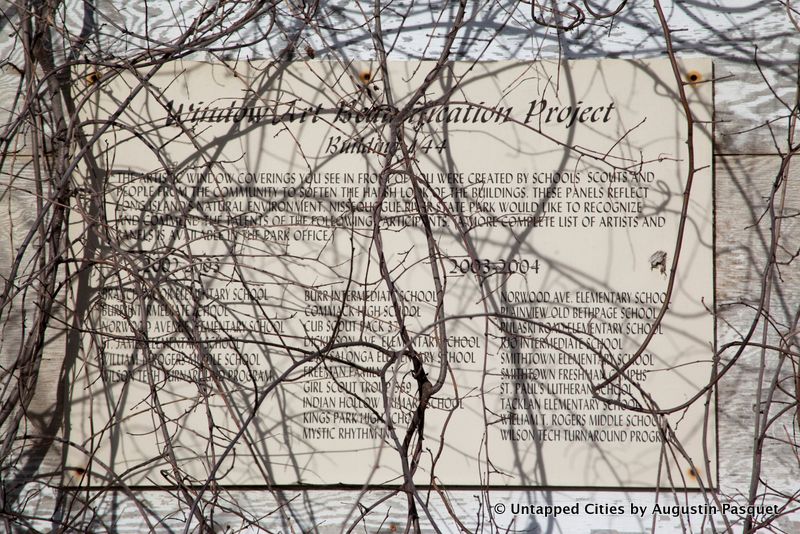 Window Art Beautification Project
Building 144
THE ARTISTIC WINDOW COVERINGS YOU SEE IN FRONT OF YOU WERE CREATED BY SCHOOLS SCOUTS AND
PEOPLE FROM THE COMMUNITY TO SOFTEN THE HARSH LOOK OF THE BUILDINGS. THESE PANELS REFLECT
LONG ISLAND'S NATURAL ENVIRONMENT. NISSEQUOGUE RIVER STATE PARK WOULD LIKE TO RECOGNIZE
AND COMMEND THE TALENTS OF THE FOLLOWING PARTICIPANTS. A MORE COMPLETE LIST OF ARTISTS AND
PANELS IS AVAILABLE IN THE PARK OFFICE.
2002-2003
ELEMENTARY SCHOOL
BURR INTERMEDIATE SCHOOL
NORWOOD AVENUE ELEMENTARY SCHOOL
ST. JAMES ELEMENTARY SCHOOL
WILLIAM T. ROGERS MIDDLE SCHOOL
WILSON TECH TURNAROUND PROGRAM
2003-2004
BURR INTERMEDIATE SCHOOL
COMMACK HIGH SCHOOL
CUB SCOUT PACK
DICKINSON AVE. ELEMENTARY SCHOOL
SALONGA ELEMENTARY SCHOOL
FREEMAN FAMILY
GIRL SCOUT TROUP
INDIAN HOLLOW PRIMARY SCHOOL
KINGS PARK HIGH SCHOOL
MYSTIC RHYTHM INC
NORWOOD AVE. ELEMENTARY SCHOOL
PLAINVIEW OLD BETHPAGE SCHOOL
PULASKI ROAD ELEMENTARY SCHOOL
INTERMEDIATE SCHOOL
SMITHTOWN ELEMENTARY SCHOOL
SMITHTOWN FRESHMAN CAMPUS
ST. PAUL'S LUTHERAN SCHOOL
TACKLAN ELEMENTARY SCHOOL
WILLIAM T. ROGERS MIDDLE SCHOOL
WILSON TECH TURNAROUND PROGRAM
© Untapped Cities by Augustin Pasquet